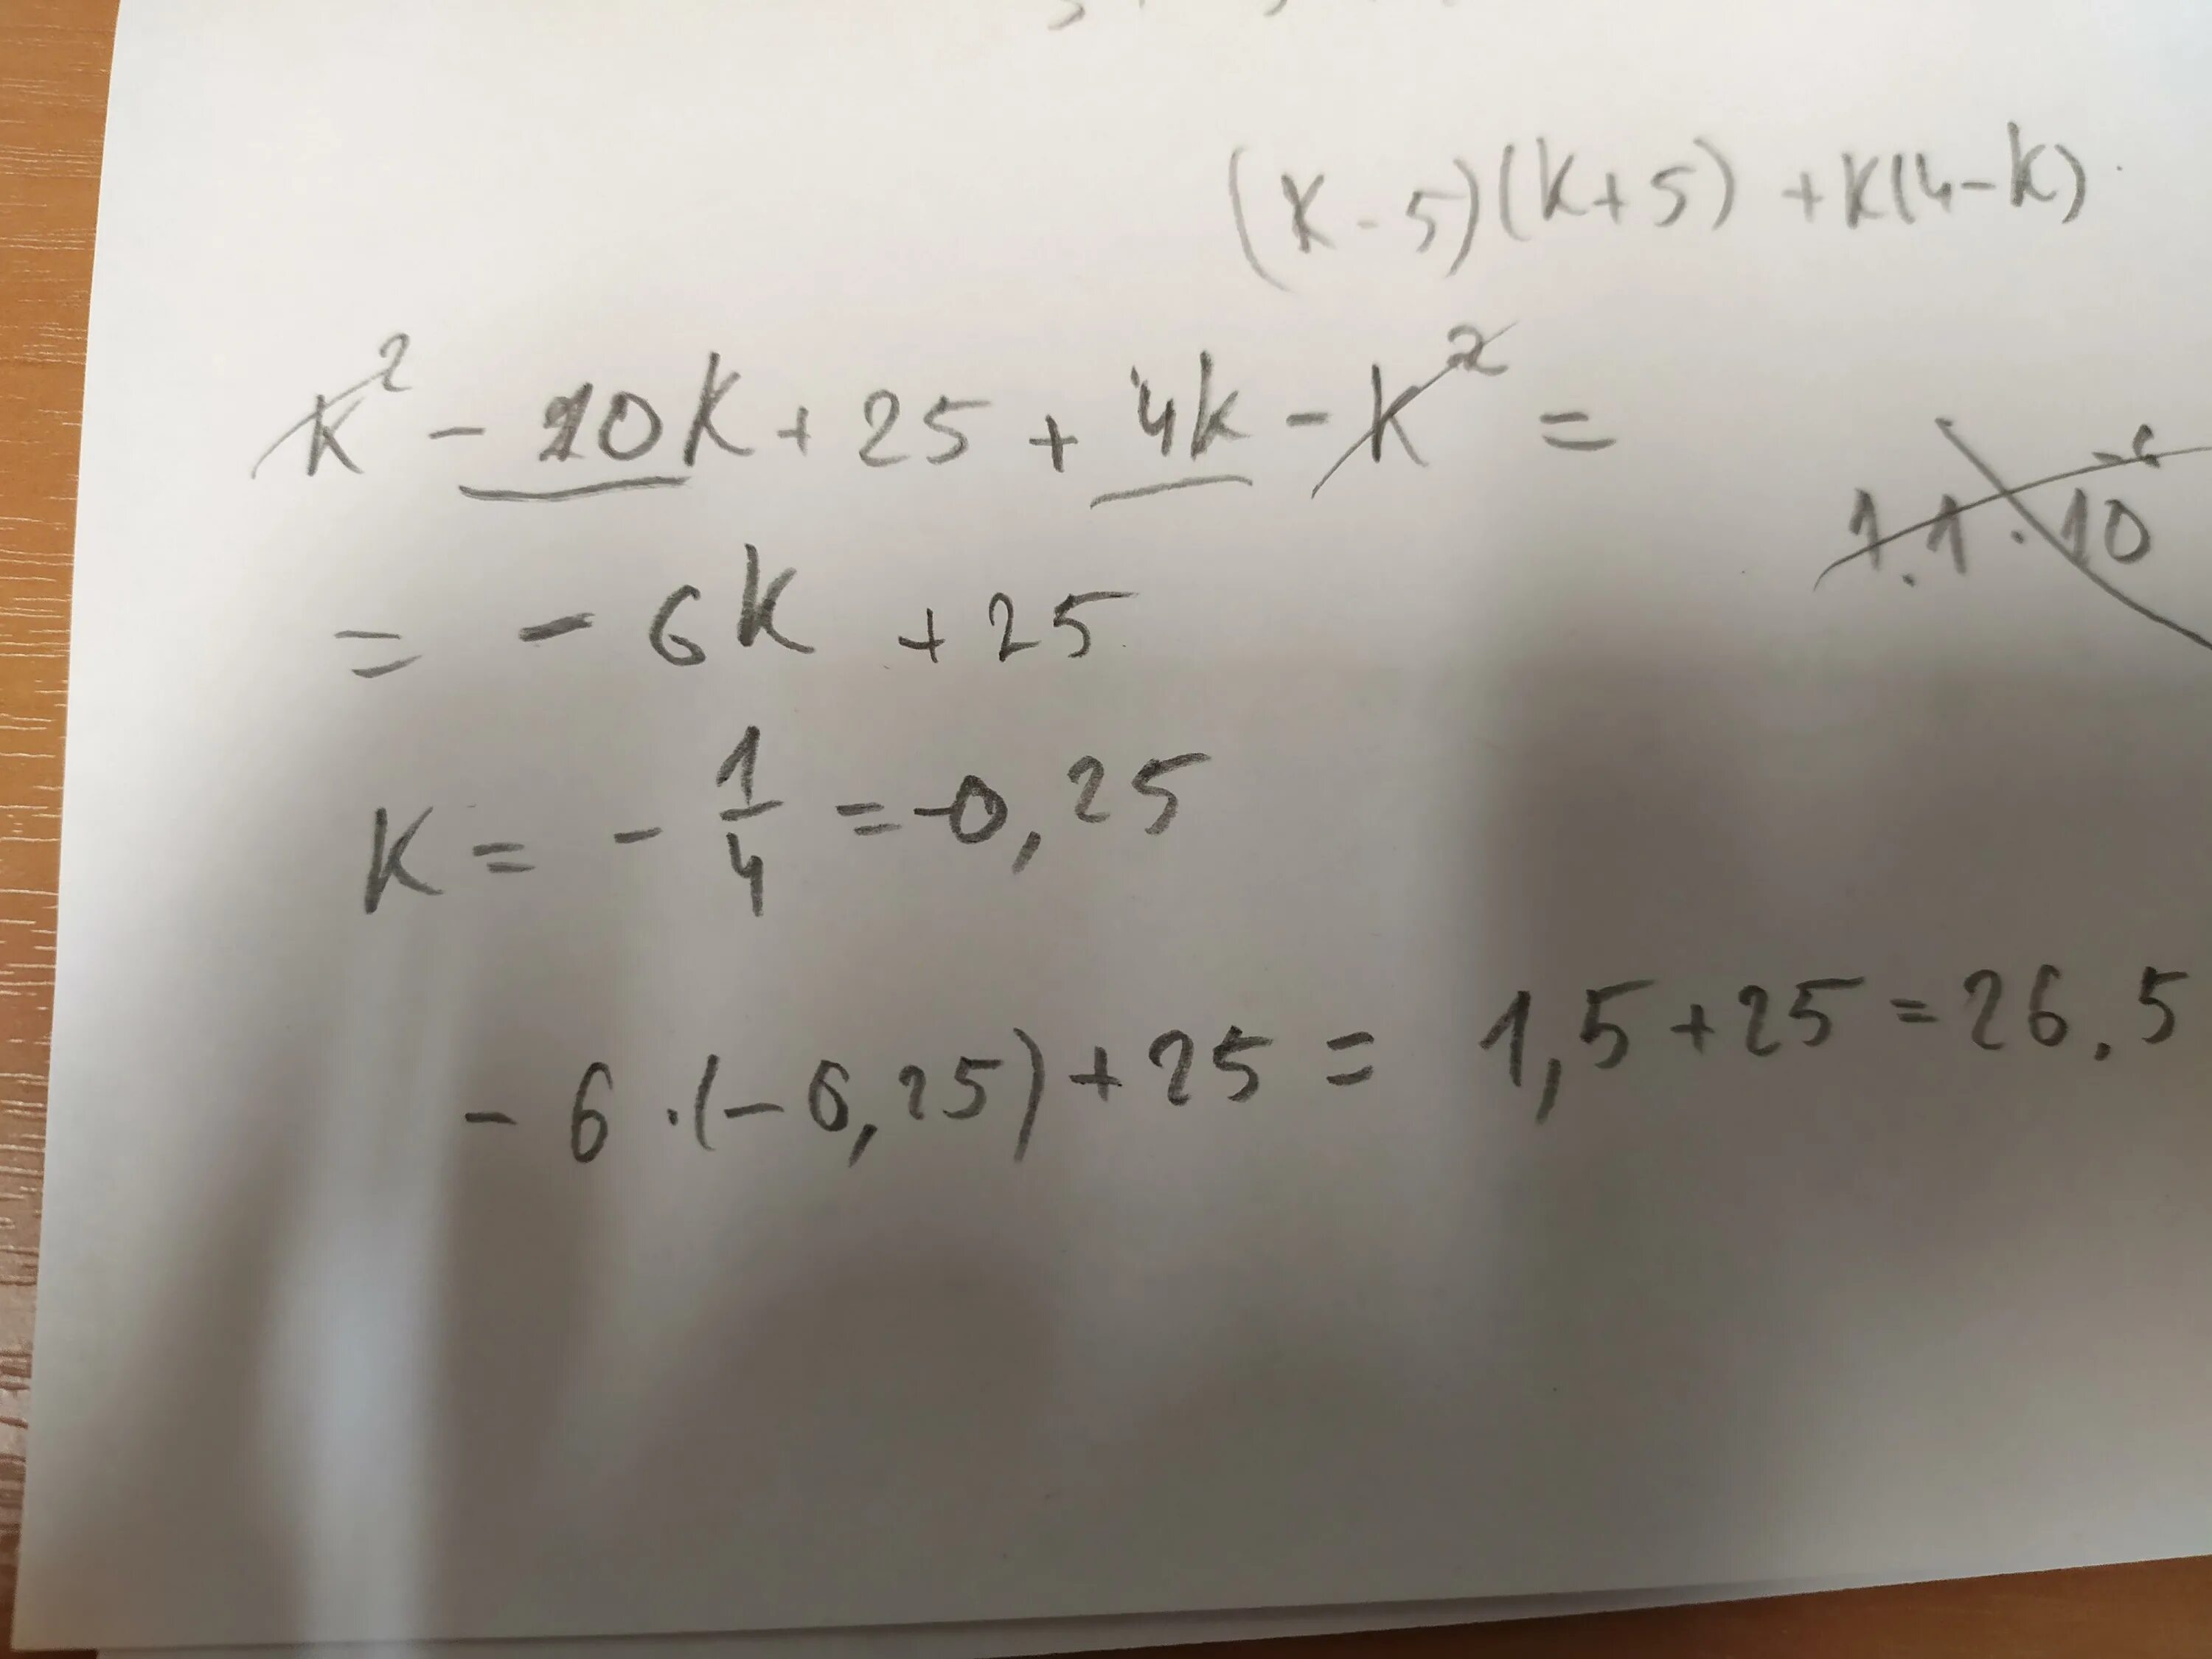 (k - 5)(k + 5) + k(4 - k)
k² - 10k + 25 + 4k - k² =
-6
1.1.10
= - 6k + 25
k = - 1/4 = -0,25
- 6 · (- 0,25) + 25 = 1,5 + 25 = 26.5